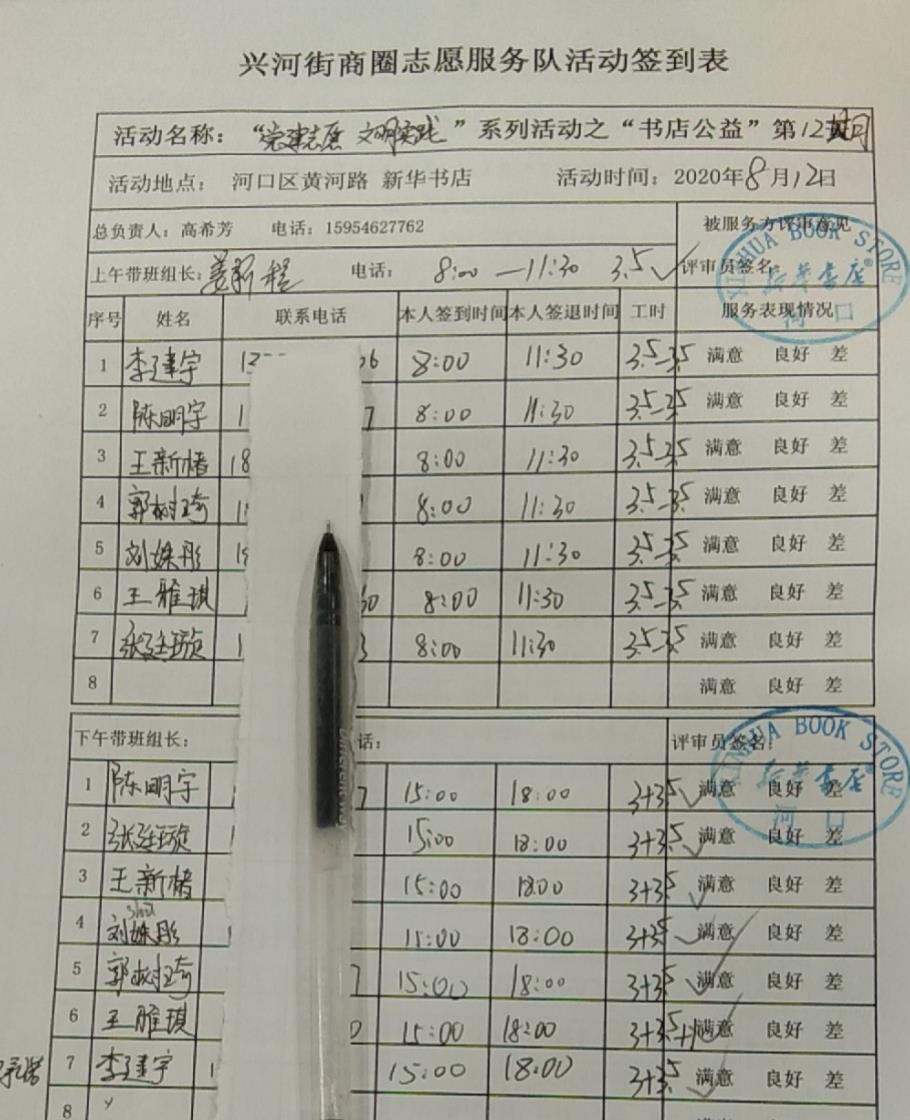 兴河街商圈志愿服务队活动签到表
活动名称：“党建志愿 文明实践”系列活动之“书店公益”第12期
活动地点： 河口区黄河路 新华书店 活动时间：2020年8月12日
总负责人：高希芳 电话：15954627762 被服务方评审意见
上午带班组长：姜新程 电话： 8:00—11:30 3.5✓ 评审员签名：
XINHUA BOOK STORE
新华书店
河口
序号 姓名 联系电话 本人签到时间 本人签退时间 工时 服务表现情况
1 李建宇 8:00 11:30 3.5—3.5 满意 良好 差
2 陈明宇 8:00 11:30 3.5—3.5 满意 良好 差
3 王新楮 18 8:00 11:30 3.5—3.5 满意 良好 差
4 郭 8:00 11:30 3.5—3.5 满意 良好 差
5 刘姝彤 8:00 11:30 3.5—3.5 满意 良好 差
6 王雅琪 8:00 11:30 3.5—3.5 满意 良好 差
7 张廷璇 8:00 11:30 3.5—3.5 满意 良好 差
8 满意 良好 差
下午带班组长： 话： 评审员签名：
XINHUA BOOK STORE
新华书店
河口
1 陈明宇 7 15:00 18:00 3+3.5✓ 满意 良好 差
2 张廷璇 15:00 18:00 3+3.5✓ 满意 良好 差
3 王新楮 15:00 18:00 3+3.5✓ 满意 良好 差
shu
4 刘姝彤 15:00 18:00 3+3.5✓ 满意 良好 差
5 郭 15:00 18:00 3+3.5✓ 满意 良好 差
6 王雅琪 15:00 18:00 3+3.5+1 满意 良好 差
7 李建宇 15:00 18:00 3+3.5✓ 满意 良好 差
8